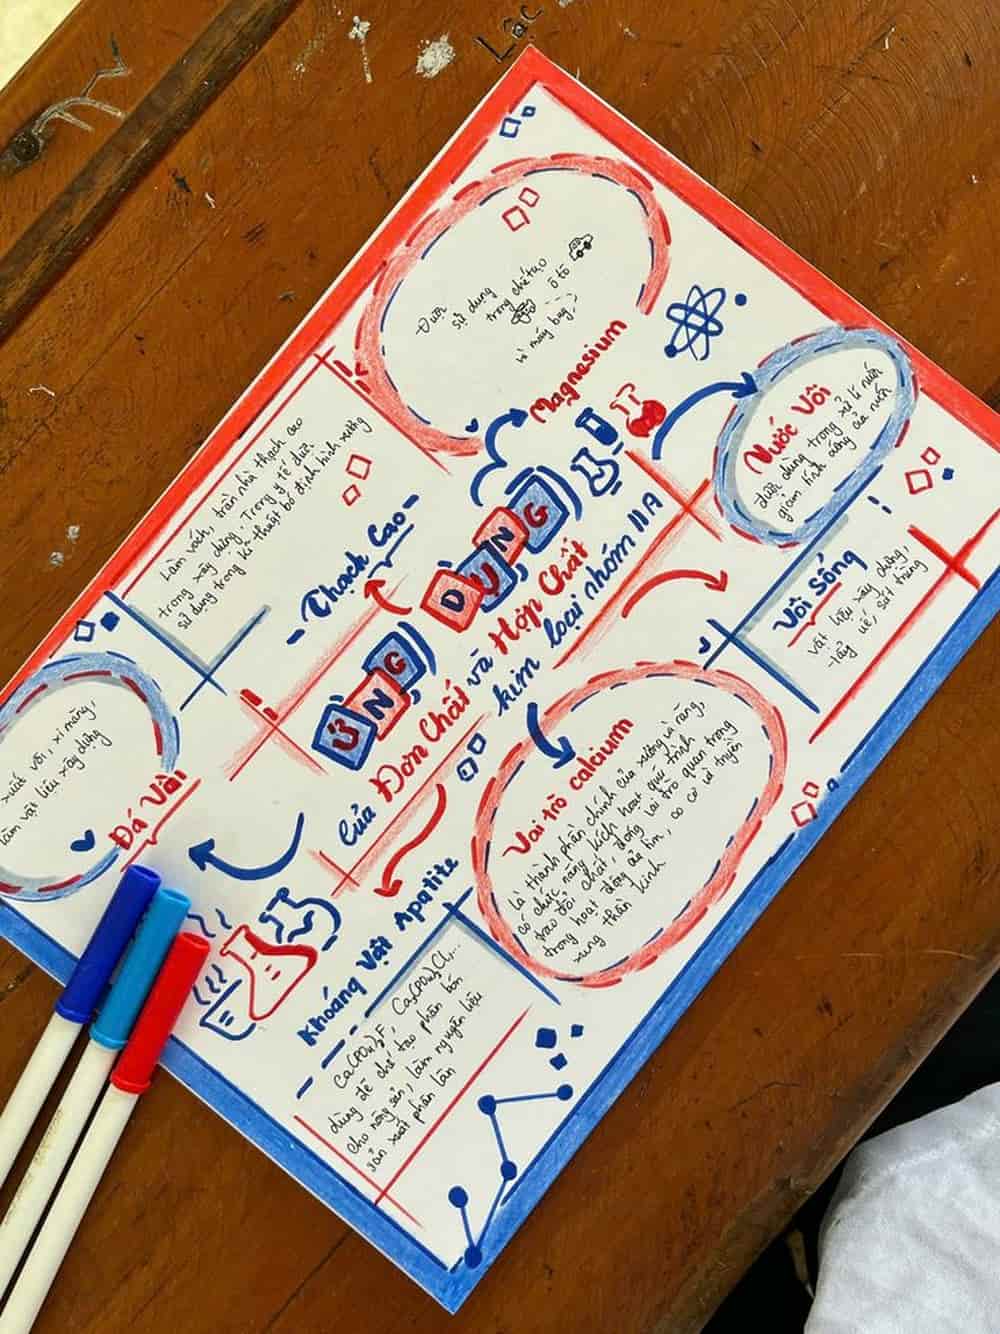 Lộc
ỨNG DỤNG
của Đơn Chất và Hợp Chất
kim loại nhóm IIA
Magnesium
được
sử dụng
trong chế tạo
ô tô
và máy bay
Nước Vôi
được dùng trong xử lí nước
giảm tính cứng của nước
Vôi Sống
vật liệu xây dựng,
tẩy uế, sát trùng
Vai trò calcium
là thành phần chính của xương và răng,
có chức năng kích hoạt quá trình
trao đổi chất, đóng vai trò quan trọng
trong hoạt động của tim, co cơ và truyền
xung thần kinh
Khoáng Vật Apatite
Ca5(PO4)3F Ca5(PO4)3Cl,...
dùng để chế tạo phân bón
cho nông sản, làm nguyên liệu
sản xuất phân lân
Đá Vôi
xuất vôi, xi măng,
làm vật liệu xây dựng
- Thạch Cao -
Làm vách, trần nhà thạch cao
trong xây dựng. Trong y tế được
sử dụng trong kĩ thuật bó định hình xương